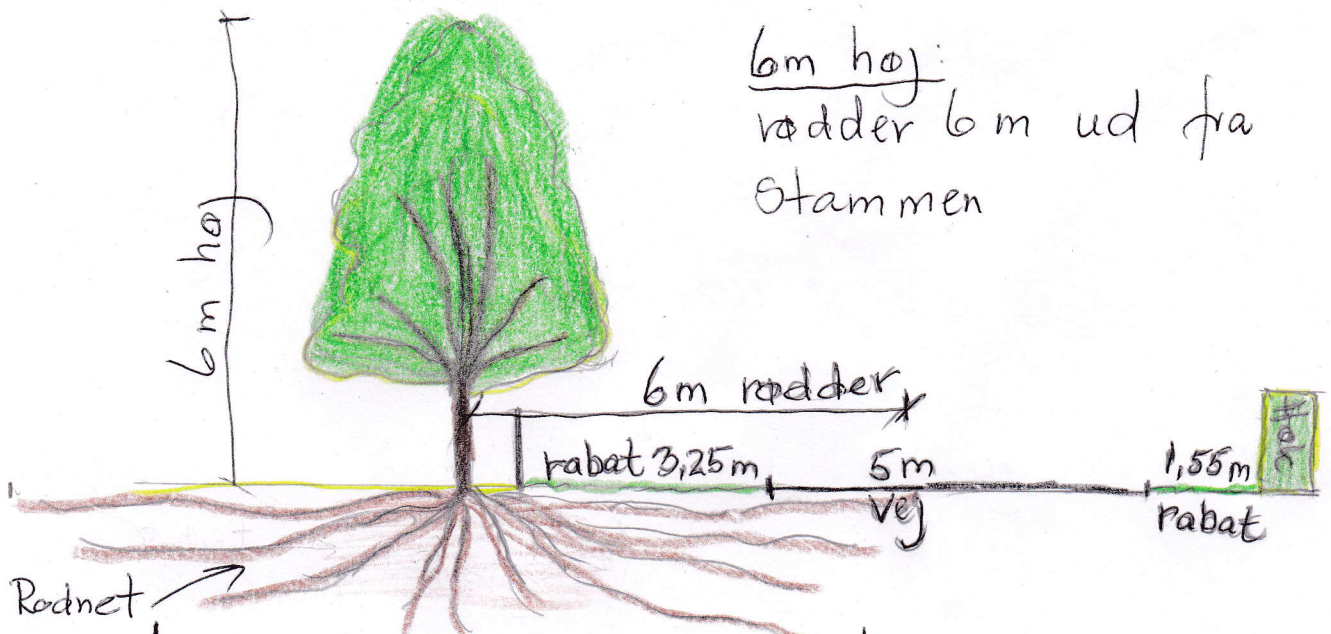 6m høj:
rødder 6m ud fra
Stammen
6m høj
6m rødder
rabat 3,25m
5m
vej
1,55m
rabat
Rodnet